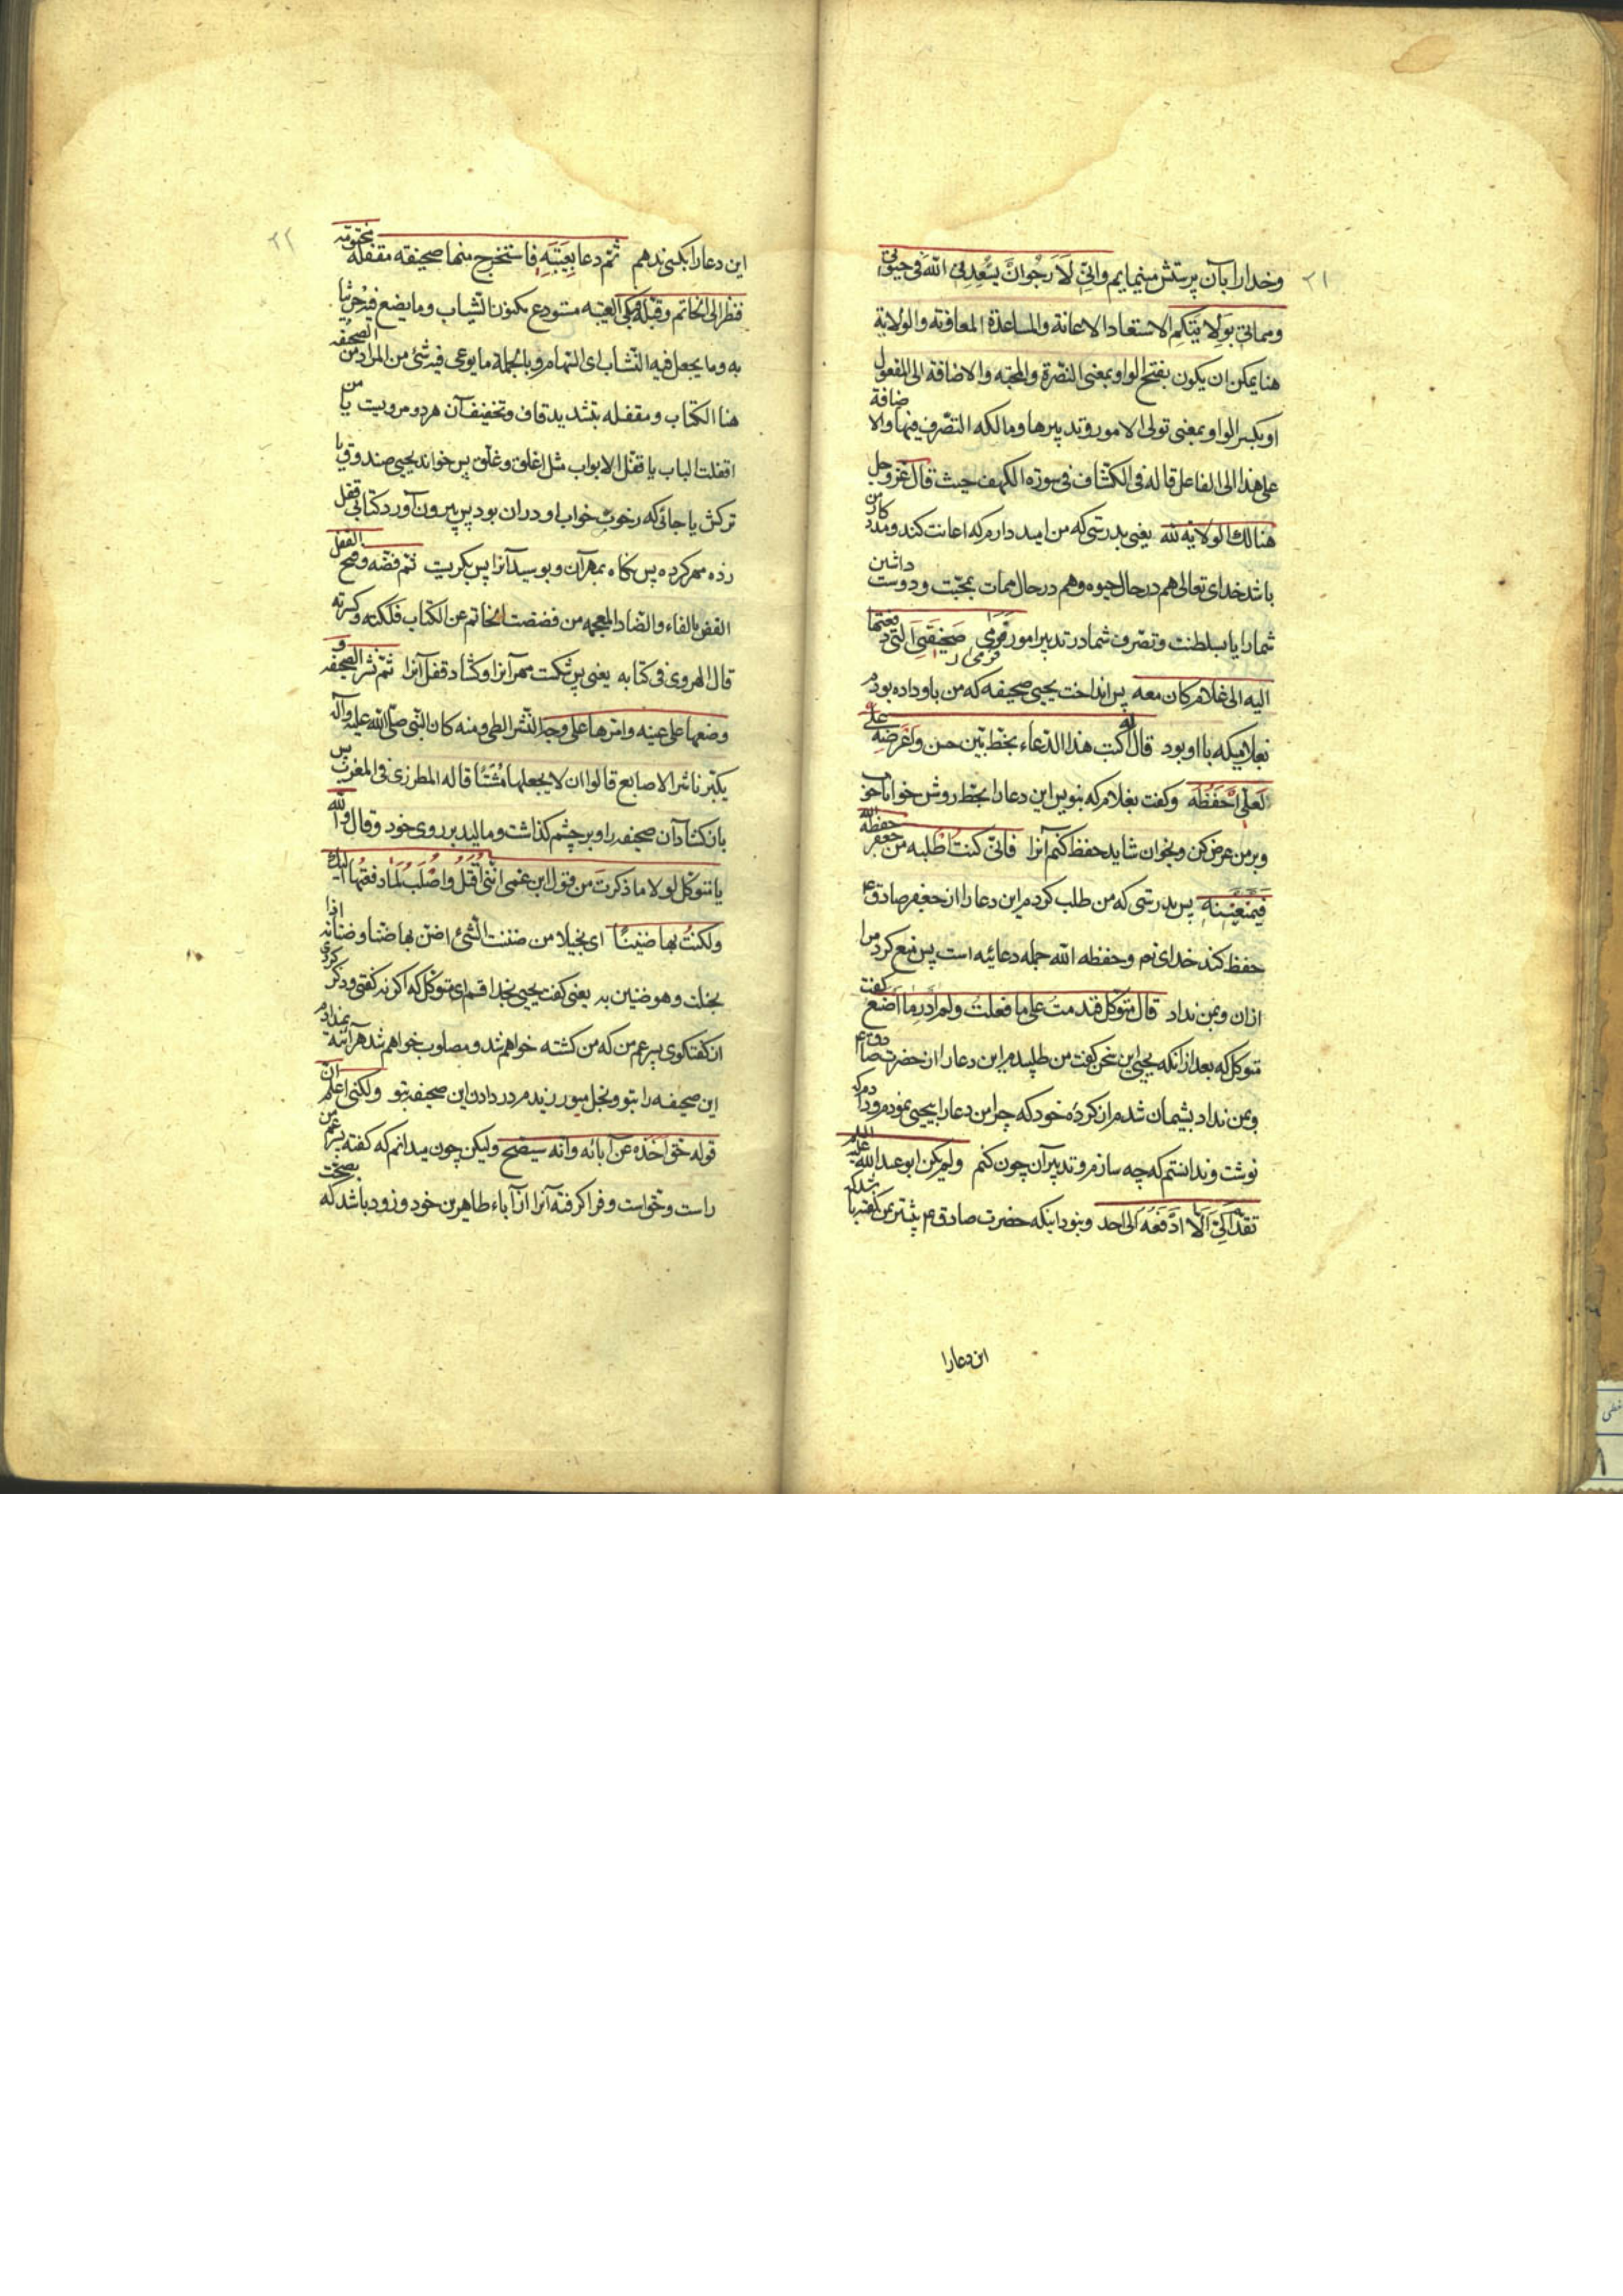 ۲۱
وخدا را بآن پرستش مینمایم وانّی لَاَرجُو انَّ یسُعِدنِی اللّه فی حیوتی
ومماتی بوَلایتکم الاسعاد الاعانة والمساعدة المعاونة والولایة
هنا یمکن ان یکون بفتح الواو بمعنی النصرة والمحبّة والاضافة الی المفعول
او بکسر الواو بمعنی تولی الامور وتدبیرها ومالکه التصّرف فیها والاضافة
علی هذا الی الفاعل قاله فی الکشّاف فی سورة الکهف حیث قال عزّ وجل
هنالك الولایة للّه یعنی بدرستی که من امید دارم که اعانت کند ومدد کار من
باشد خدای تعالی هم در حال حیوة وهم در حال ممات بمحبّت ودوست داشتن
شما را یا بسلطنت وتصرف شما در تدبیر امور فرمی صَحیفَتِی الّتی دفعتها
الیه الی غلام کان معه پس انداخت یحیی صحیفه که من باو داده بودم
بغلامیکه با او بود قال له اکتب هذا الدّعاء بخطّ بیّن حسن واَعرَضه علیّ
لَعلّی اَحفَظه وکفت بغلام که بنویس این دعا را بخطّ روشن خوانا خوب
وبر من عرض کن وبخوان شاید حفظ کنم آنرا فانّی کنتُ اَطلبه من جعفر حفظه اللّه
فیَمنَعنِیه پس بدرستی که من طلب کردم این دعا را از جعفر صادق ع
حفظ کند خدای او وحفظه اللّه جمله دعائیه است پس منع کرد مرا
ازان وبمن نداد قال متوکّل فندمتُ علی ما فعلتُ ولم اَدرِ ما اَصنع کفت
متوکّل که بعد از انکه یحیی این سخن کفت من طلبیدم این دعا را از حضرت صادق ع
وبمن نداد پشیمان شدم از کردۀ خود که چرا من دعا را بیحیی نمودم ودادم که
نوشت وندانستم که چه سازم وتدبیر آن چون کنم ولم یکن ابو عبداللّه علیه السلم
تقدّم الیّ اَلّا اَدفَعَه الی احد ونبود اینکه حضرت صادق ع پیشتر بمن کفته باشد که
این دعا را
۲۲
این دعا را بکسی ندهم ثمّ دعا بِعَیبَتِه فاستخرج منها صحیفة مقفلة مختومة
فنظر الی الخاتم وقبّله وبکی العیبه مستودع مکنون الثیاب وما یضع فیه
به وما یجعل فیه النشّاب ای السّهام وبالجملة ما یوعی فیه شئ من المراد من الصحیفه
هنا الکتاب ومقفله بتشدید قاف وتخفیف آن هر دو مرویست یا من
اقفلت الباب یا قفّل الابواب مثل اغلق وغلّق پس خواند یحیی صندوق یا
ترکش یا جائی که رخوت خواب او دران بود پس بیرون آورد کتابی قفل
زده مهر کرده پس نکاه بمهر آن وبوسید آنرا پس بکریست ثمّ فضّه وفتح القفل
الفض بالفاء والضاد المعجمه من فضضت الخاتم عن الکتاب فککته وکسرته
قال الهروی فی کتابه یعنی پس شکست مهر آنرا وکشاد قفل آنرا ثمّ نشر الصحیفه و
وضعها علی عینه وامرّها علی وجهه النّشر الطی ومنه کان النّبی صلّی اللّه علیه وآله
یکبّر ناشر الاصابع قالوا ان لا یجعلها مُشتًا قاله المطرزی فی المغرب پس
باز کشاد آن صحیفه را وبر چشم کذاشت ومالید بر روی خود وقال واللّه
یا متوکّل لولا ما ذکرتَ من قول ابن عمی انّنی اُقتَلُ واُصلَبُ لَمَا دفعتُها الیك
ولکنتُ بها ضنینًا ای بخیلا من ضننت الشّئ اضنّ بها ضنّا وضنانة اذا
بخلت وهو ضنین به یعنی کفت یحیی بخدا قسم ای متوکّل که اکر نه کفتی وذکر کردی
از کفتکوی پسر عم من که من کشته خواهم شد ومصلوب خواهم شد هر آینه نمیدادم
این صحیفه را بتو وبخل میورزیدم در دادن این صحیفه بتو ولکنّی اعلم انّ
قوله حقّ اخذه عن آبائه وانّه سیصّح ولیکن چون میدانم که کفته پسر عم من
راست وحق است وفرا کرفته آنرا از آباء طاهرین خود وزود باشد که بصحّت